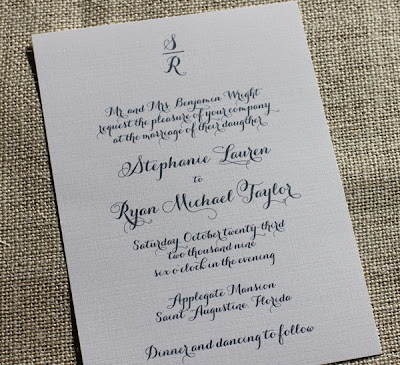 S
R
Mr and Mrs. Benjamin Wright
request the pleasure of your company
at the marriage of their daugther
Stephanie Lauren
to
Ryan Michael Taylor
Saturday October twenty-third
two thousand nine
six o clock in the evening
Applegate Mansion
Saint Augustine, Floreda
Dinner and dancing to follow